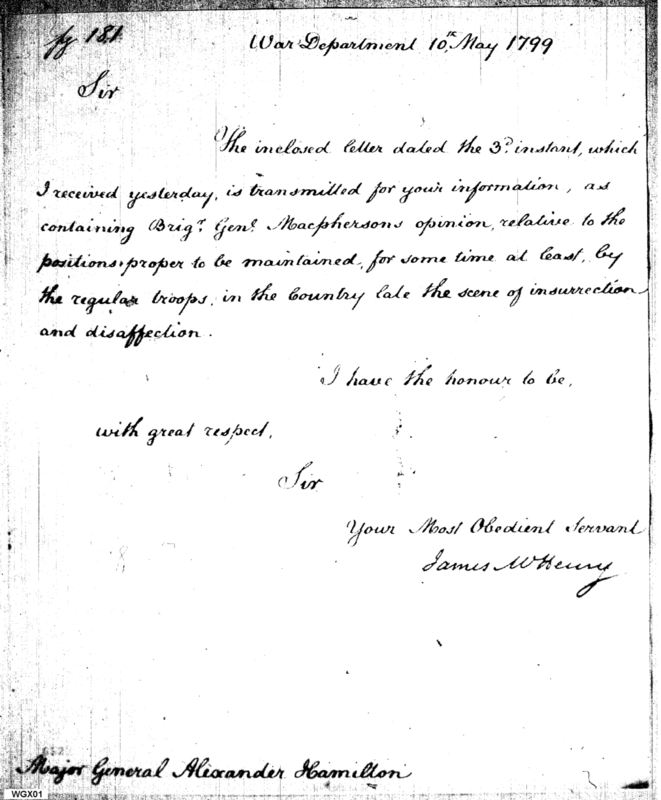 fg 181
War Department 10th May 1799
Sir
The inclosed letter dated the 3d. instant, which
I received yesterday, is transmitted for your information, as
containing Brigr. Genl. Macphersons opinion, relative to the
positions proper to be maintained, for some time at least, by
the regular troops, in the Country late the scene of insurrection
and disaffection.
I have the honour to be,
with great respect,
Sir
Your Most Obedient Servant
James McHenry
Major General Alexander Hamilton
WGX01